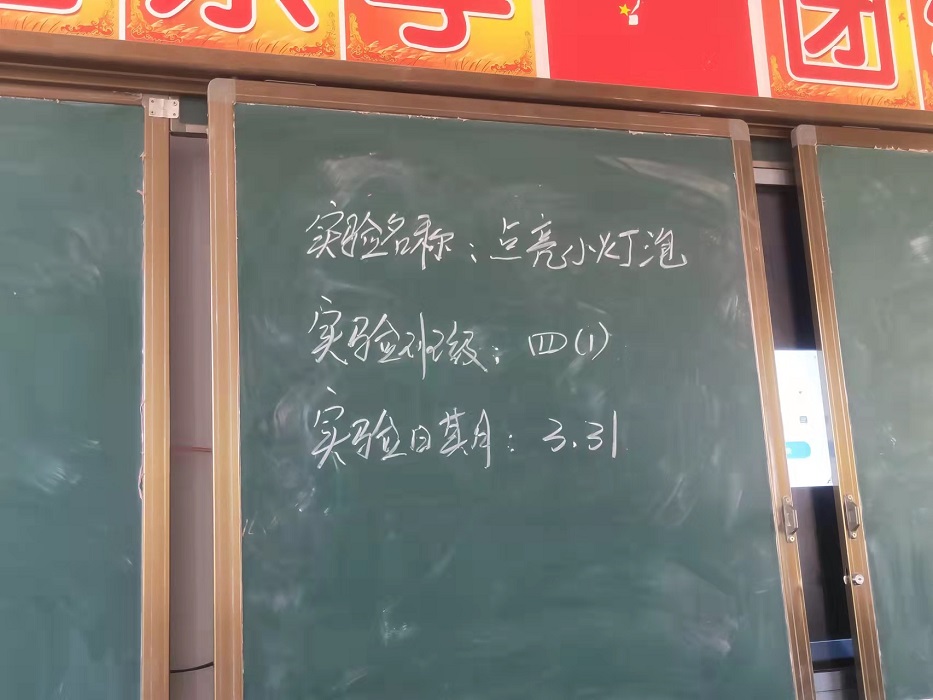 学 团
实验名称：点亮小灯泡
实验班级：四(1)
实验日期：3.31